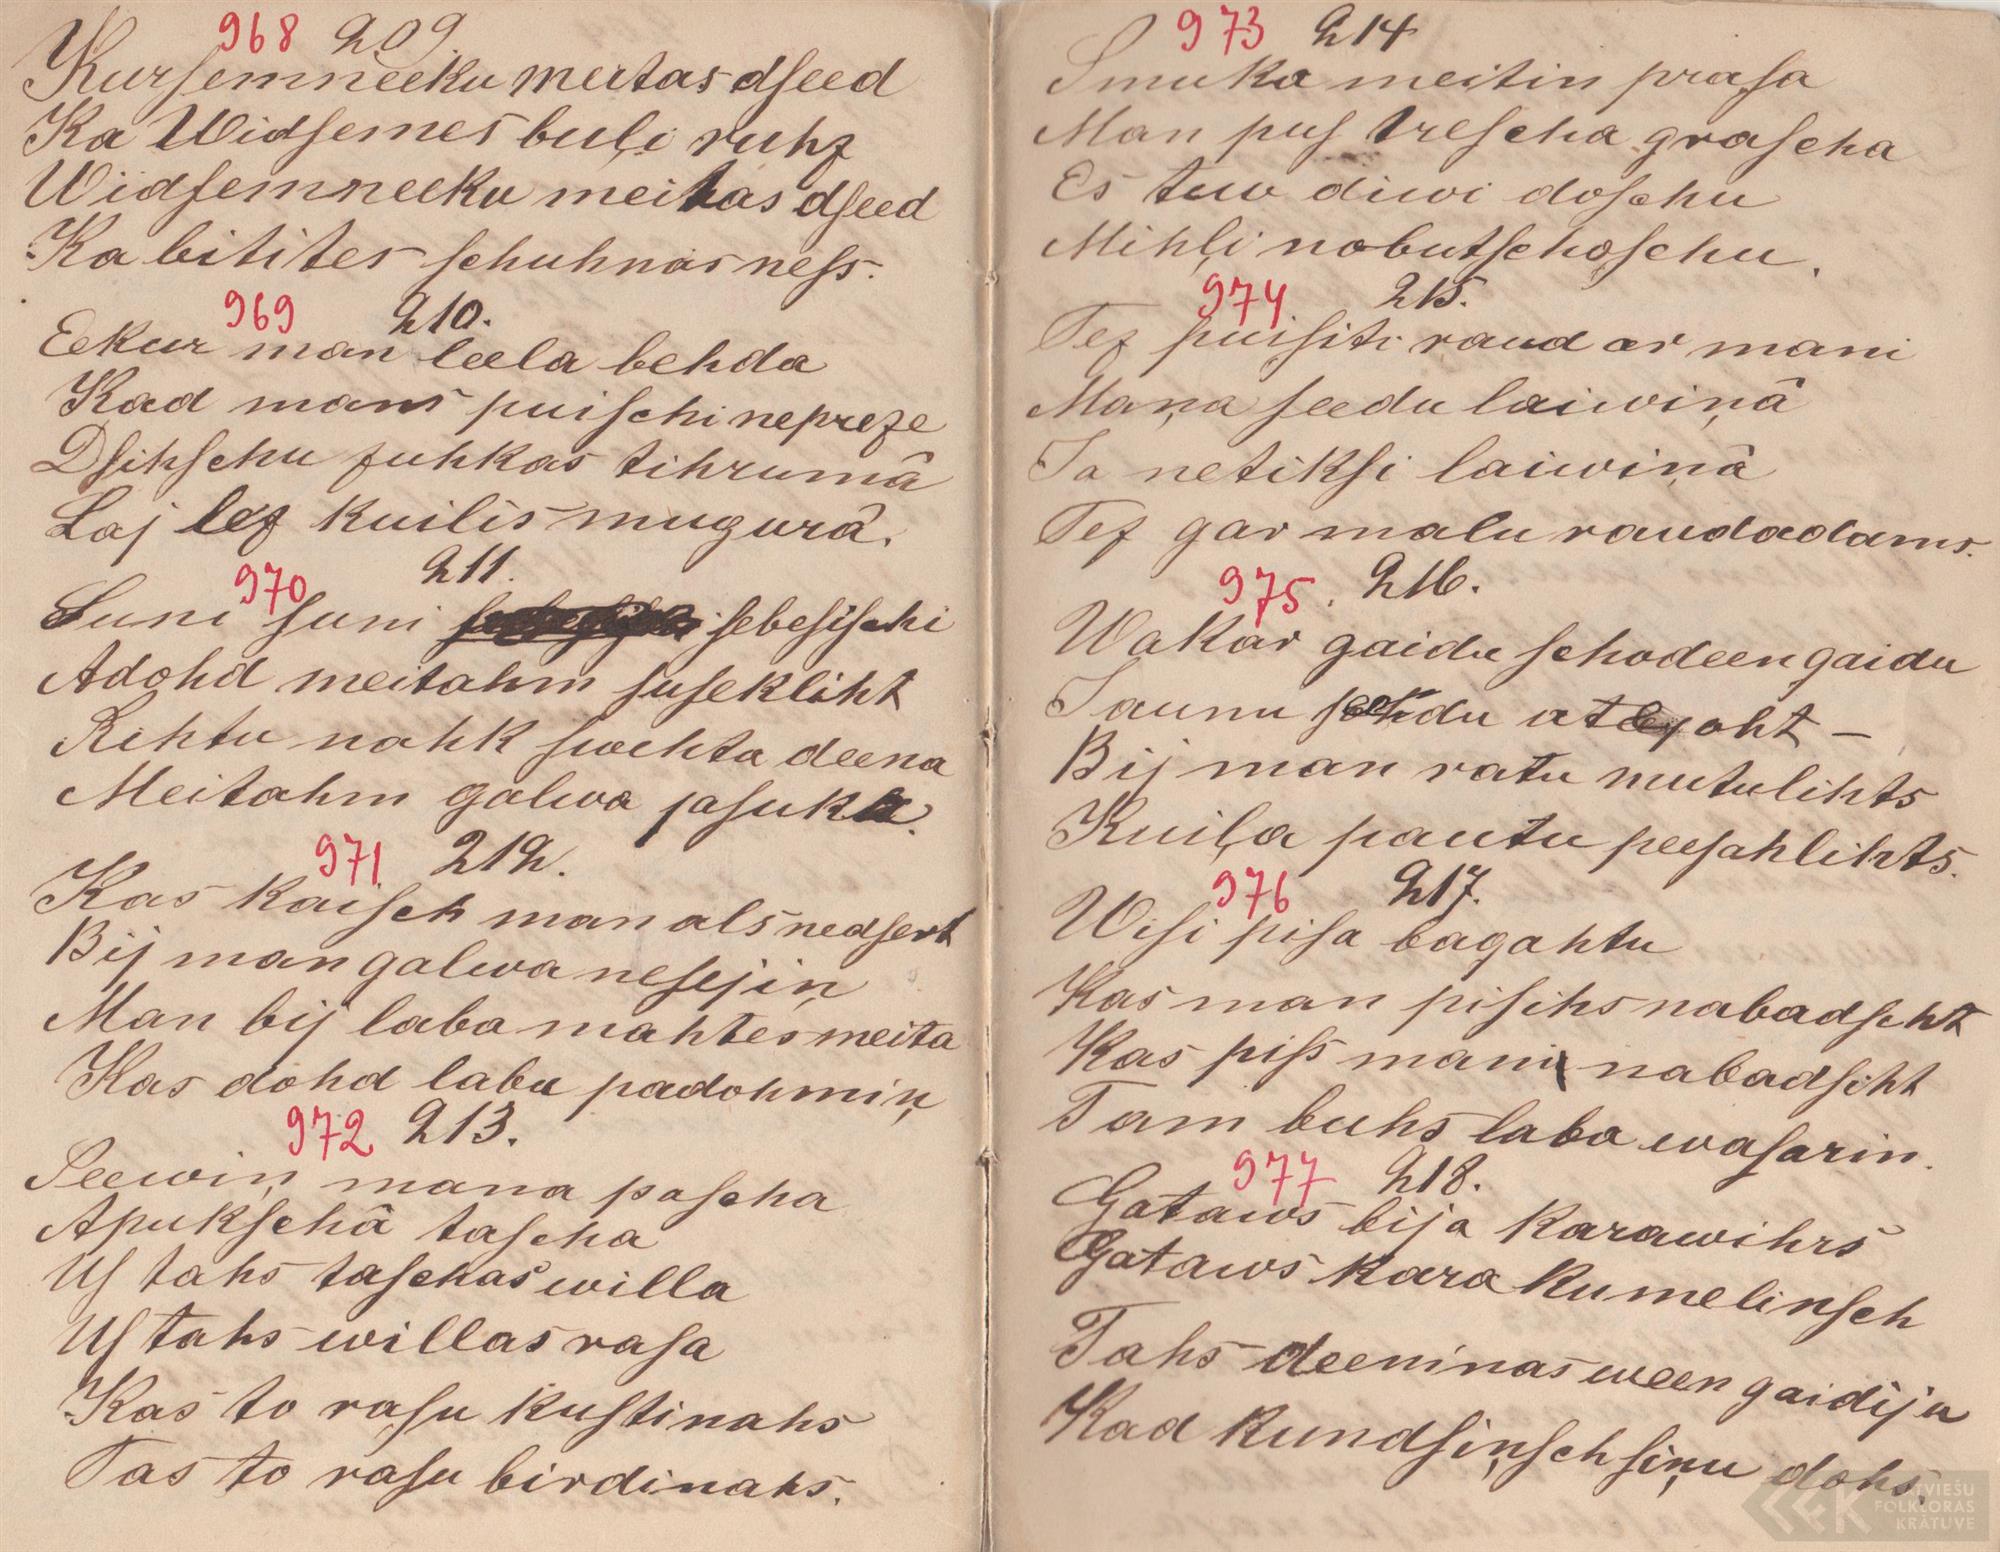 968 209.
Kursemneeku meitas dseed
Ka Widsemes buļi ruhz
Widsemneeku meitas dseed
Ka bitites schuhnas ness.
969 210.
Eekur man leela behda
Kad mans puischi nepreze
Dsihschu zuhkas tihrumâ
Laj lez kuilis mugurâ.
970 211.
Suni suni sebesischi
Adohd meitahm susekliht
Rihtu nahk swehta deena
Meitahm galwa jasuka.
971 212.
Kas kaisch man als nedsert
Bij man galwa nesejiņ
Man bij laba mahtes meita
Kas dohd labu padohmiņ
972 213.
Seewiņ mana pascha
Apukschâ tascha
Us tahs taschas willa
Us tahs willas rasa
Kas to rasu kustinahs
Tas to rasu birdinahs.
973 214
Smuka meitin prasa
Man pus trescha grascha
Es tew diwi doschu
Mihļi nobutschoschu.
974 215.
Tez puisiti raud ar mani
Maņa seedu laiwiņâ
Ja netiksi laiwiņâ
Tez gar malu raudadams.
975. 216.
Wakar gaidu schodeen gaidu
Jaunu atejoht –
Bij man ratu mutulihts
Kuiļa pautu peesahlihts.
976 217.
Wisi pisa bagahtu
Kas man pisihs nabadseht
Kas piss mani nabadsiht
Tam buhs laba wasarin.
977 218.
Gataws bija karawihrs
Gataws kara kumelinsch
Tahs deeninas ween gaidiju
Kad kundsiņsch siņu dohs.
LATVIEŠU
FOLKLORAS
KRĀTUVE